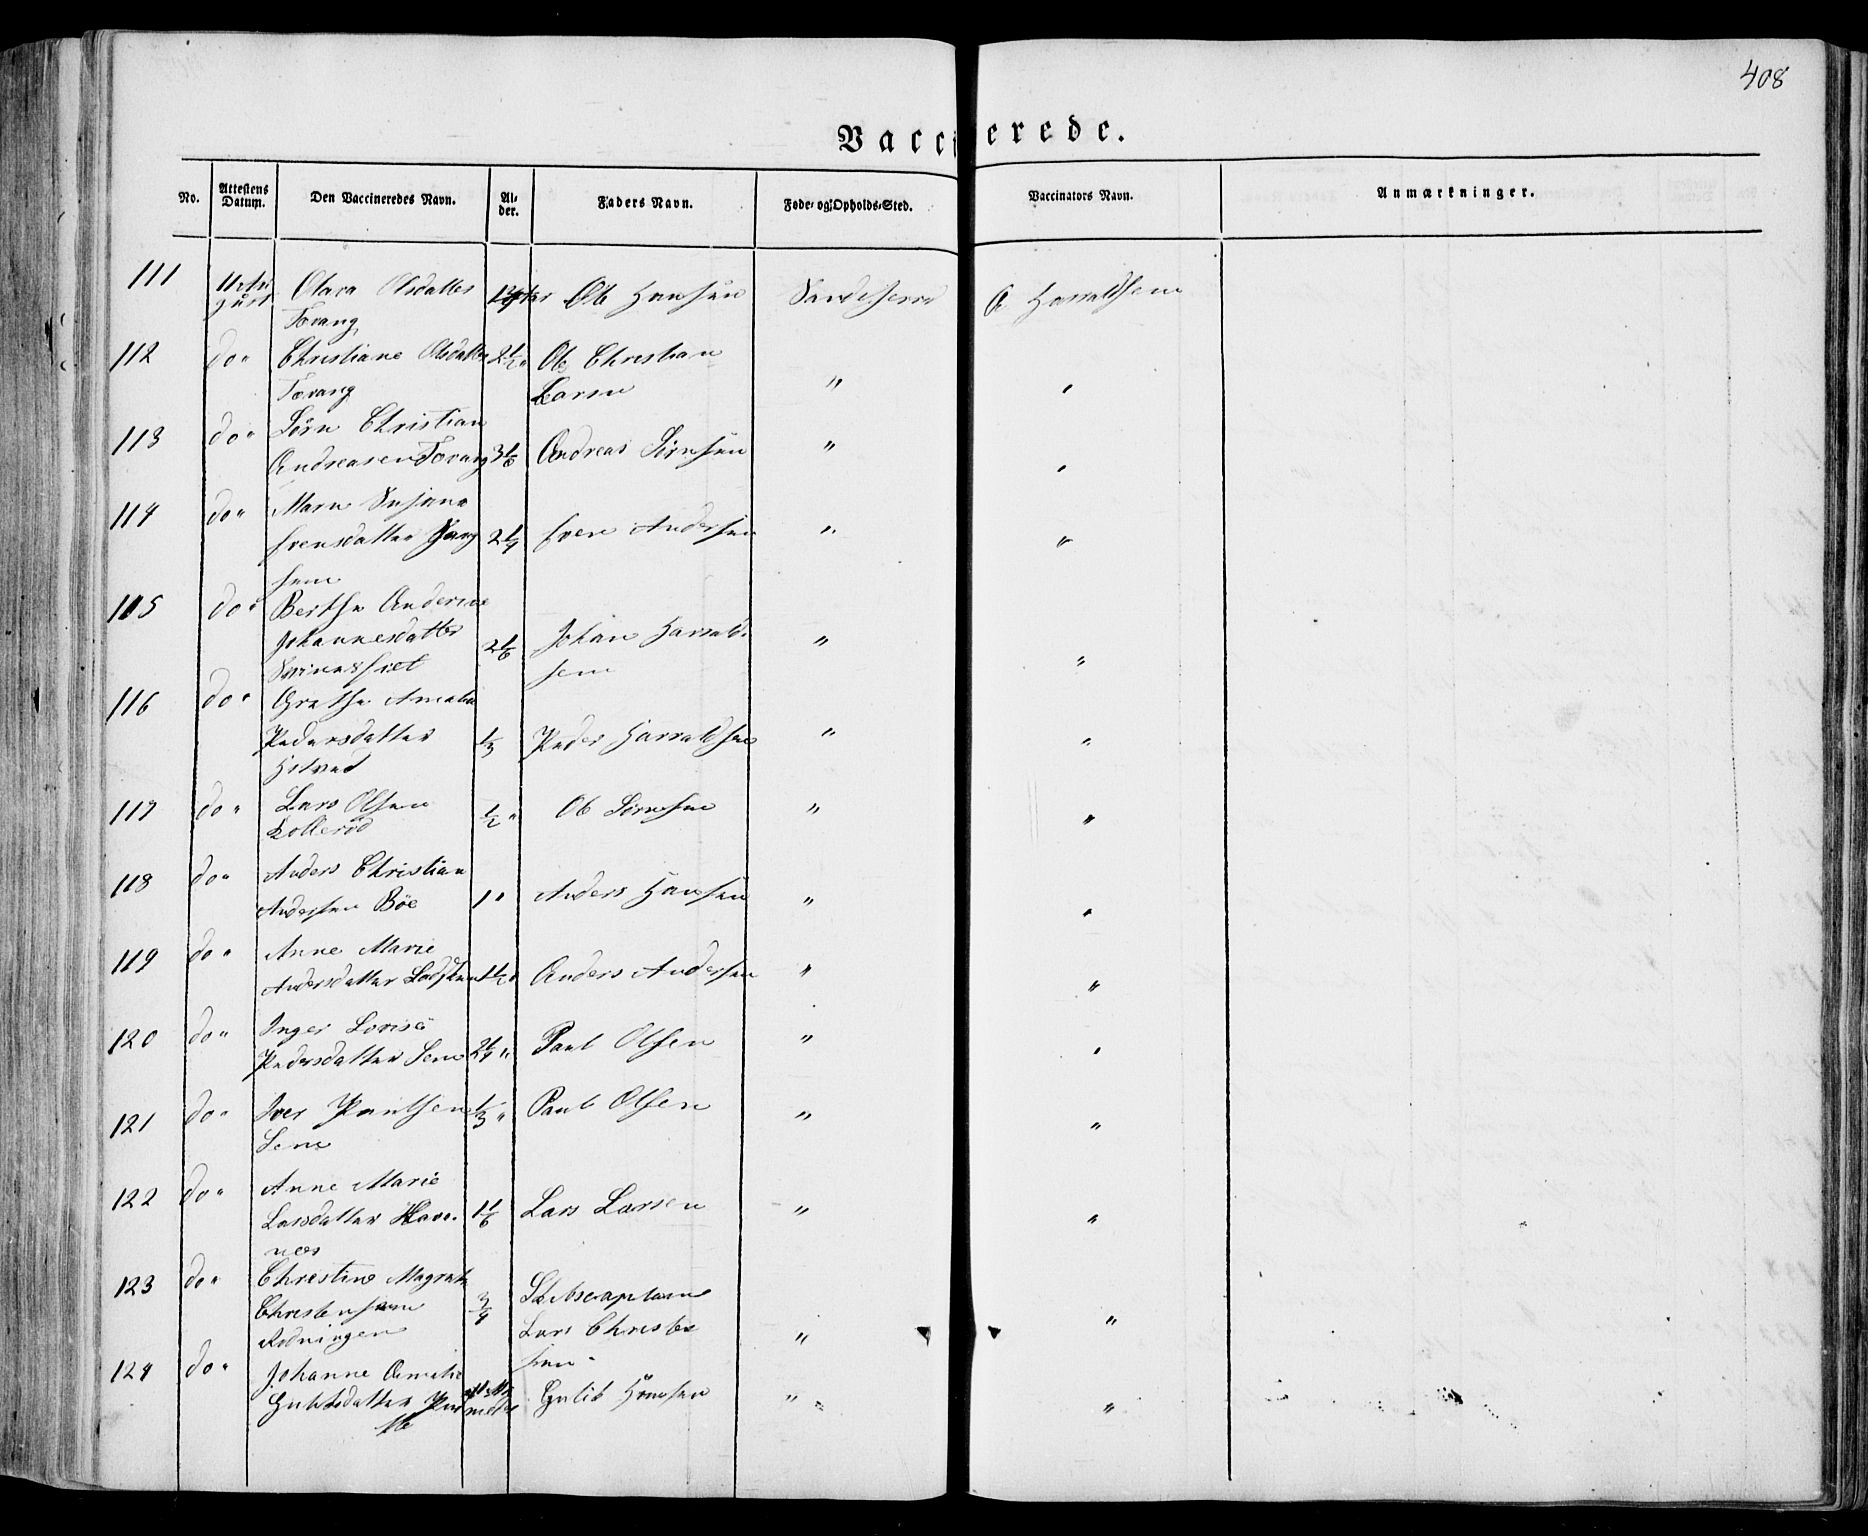 408
Vaccinerede.
No. Attestens Datum. Den Vaccineredes Navn. Al-der. Faders Navn. Føde- og Opholds-Sted. Vaccinators Navn. Anmærkninger.
111 Olava Olsdatter Ole Hansen Sandeherred A Harraldsen
Tovang
112 do " Christiane Olsdatter 2 1/2 " Ole Christian
Tovang Larsen " "
113 do " Sörn Christian
Andreasen Tovang 3 1/6 Andreas Sörnsen " "
114 do " Maren Susane
Svensdatter 2 1/4 Sven Andersen " "
115 do " Berthe Anderine
Johannesdatter 2 1/6 Johan Harrald- " "
sen
116 do " Grethe Amalie
Pedersdatter 1/3 Peder Harraldsen " "
117 do " Lars Olsen 1/2 " Ole Sörnsen " "
Kolleröd
118 do " Anders Christian
Andersen Böe 1 " Anders Hansen " "
119 do " Anne Marie
Andersdatter 1 1/2 " Anders Andersen " "
120 do " Inger Lovise
Pedersdatter Lem 2 1/4 " Paul Olsen " "
121 do " Iver Paulsen 1/3 " Paul Olsen " "
Lem
122 do " Anne Marie
Larsdatter Have- 1 1/6 Lars Larsen " "
næs
123 do " Christine Magrete
Christensen 3/4 Skibscaptain
Rödningen Lars Christen " "
sen
124 do " Johanne Amalie
Guliksdatter Gulik Hansen " "